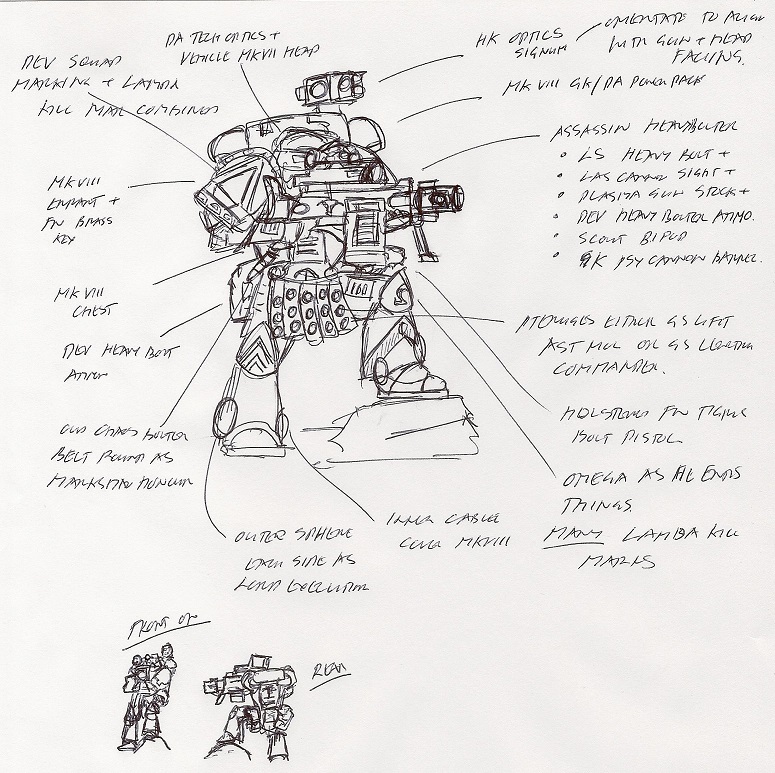 DEV SQUAD
MARKING + LAMDA
KILL MARK COMBINED
DA TECH OPTICS +
VEHICLE MKVII HEAD
HK OPTICS
SIGNUM
ORIENTATE TO ALIGN
WITH GUN + HEAD
FACING.
MK VIII GK/DA POWER PACK
ASSASSIN HEAVYBOLTER
• LS HEAVY BOLT +
• LAS CANNON SIGHT +
• PLASMA GUN STOCK +
• DEV HEAVY BOLTER AMMO.
• SCOUT BIPOD
• GK PSY CANNON BARREL.
MKVIII
+
FW BRASS
KEY
MK VIII
CHEST
DEV HEAVY BOLT
AMMO
OLD CHAOS BOLTER
BELT ROUND AS
MARKSMAN HONOUR
PTERUGES EITHER AS GIFT
AST MIL OR AS
COMMANDER.
HOLSTERED FW
BOLT PISTOL
OMEGA AS HE ENDS
THINGS.
MANY LAMBA KILL
MARKS
OUTER SPHERE
EACH SIDE AS
LORD EXECUTIONER
INNER CABLE
COVER MKVIII
FRONT ON
REAR